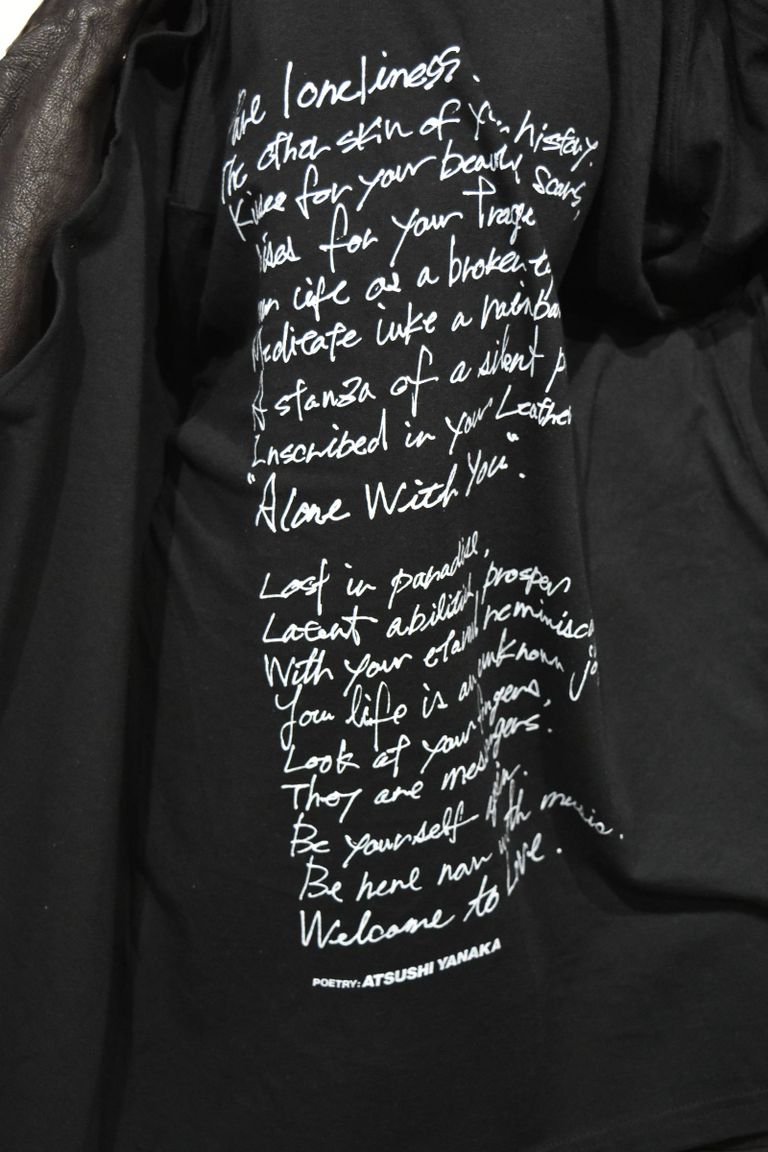 loneliness.
The other skin of your history.
Kisses for your beautiful scars,
for your
life as a broken
Meditate like a rainbow
A stanza of a silent
Inscribed in your Leather
"Alone With You".
Lost in paradise,
Latent abilities prosper
With your eternal
Your life is an unknown
Look at your fingers,
They are messengers.
Be yourself again.
Be here now with music.
Welcome to Love.
POETRY: ATSUSHI YANAKA